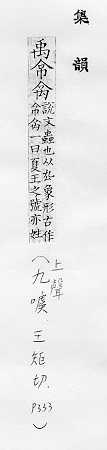 集韻
禹
說文蟲也从厹象形古作
一曰夏王之號亦姓
(上聲 九噳 王矩切. P333)